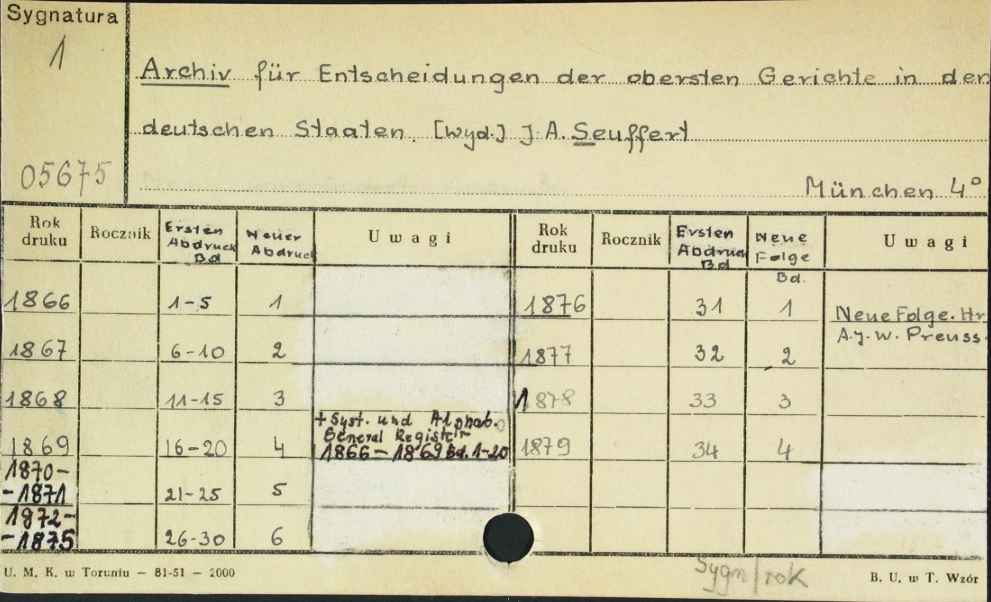 Sygnatura
1
Archiv für Entscheidungen der obersten Gerichte in den
deutschen Staaten. [wyd.] J. A. Seuffert
05675
München 4°
Rok druku Rocznik Ersten Abdruck Bd Neuer Abdruck Uwagi Rok druku Rocznik Ersten Abdruck Bd Neue Folge Bd. Uwagi
1866 1-5 1 1876 31 1 Neue Folge. Hr
A.J.W. Preuss.
1867 6-10 2 1877 32 2
1868 11-15 3 1878 33 3
+ Syst. und Alphab.
General Register
1869 16-20 4 1866-1869 Bd. 1-20 1879 34 4
1870-
-1871 21-25 5
1972-
-1875 26-30 6
Sygn/rok
U. M. K. w Toruniu – 81-51 – 2000 B. U. w T. Wzór